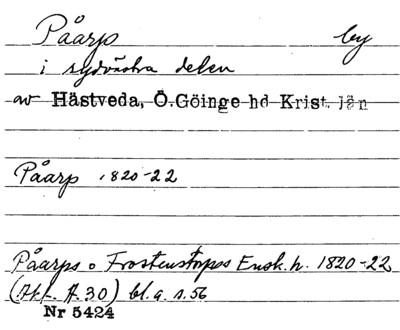 Påarp by
i sydvästra delen
av Hästveda, Ö.Göinge hd Krist. län
Påarp 1820-22
Påarps o Frostentorps Ensk.h. 1820-22
(Akt. A.30) bl.a. s.56
Nr 5424